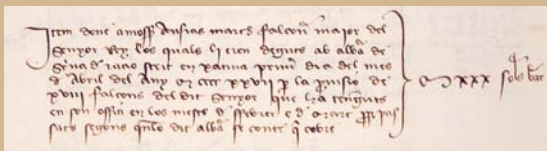 Item done a mossen Ausias march falconer maior del
Senyor Rey los quals li eren deguts ab albara de
scriua de racio scrit en xatiua primer dia del mes
d Abril del Any M cccc xxvii per la prouisio de
xviii falcons del dit Senyor que ha tenguts
en son offici en los meses d ffebrer e de març prop pas
sats segons quen lo dit albara se conte que cobre
xxx sols